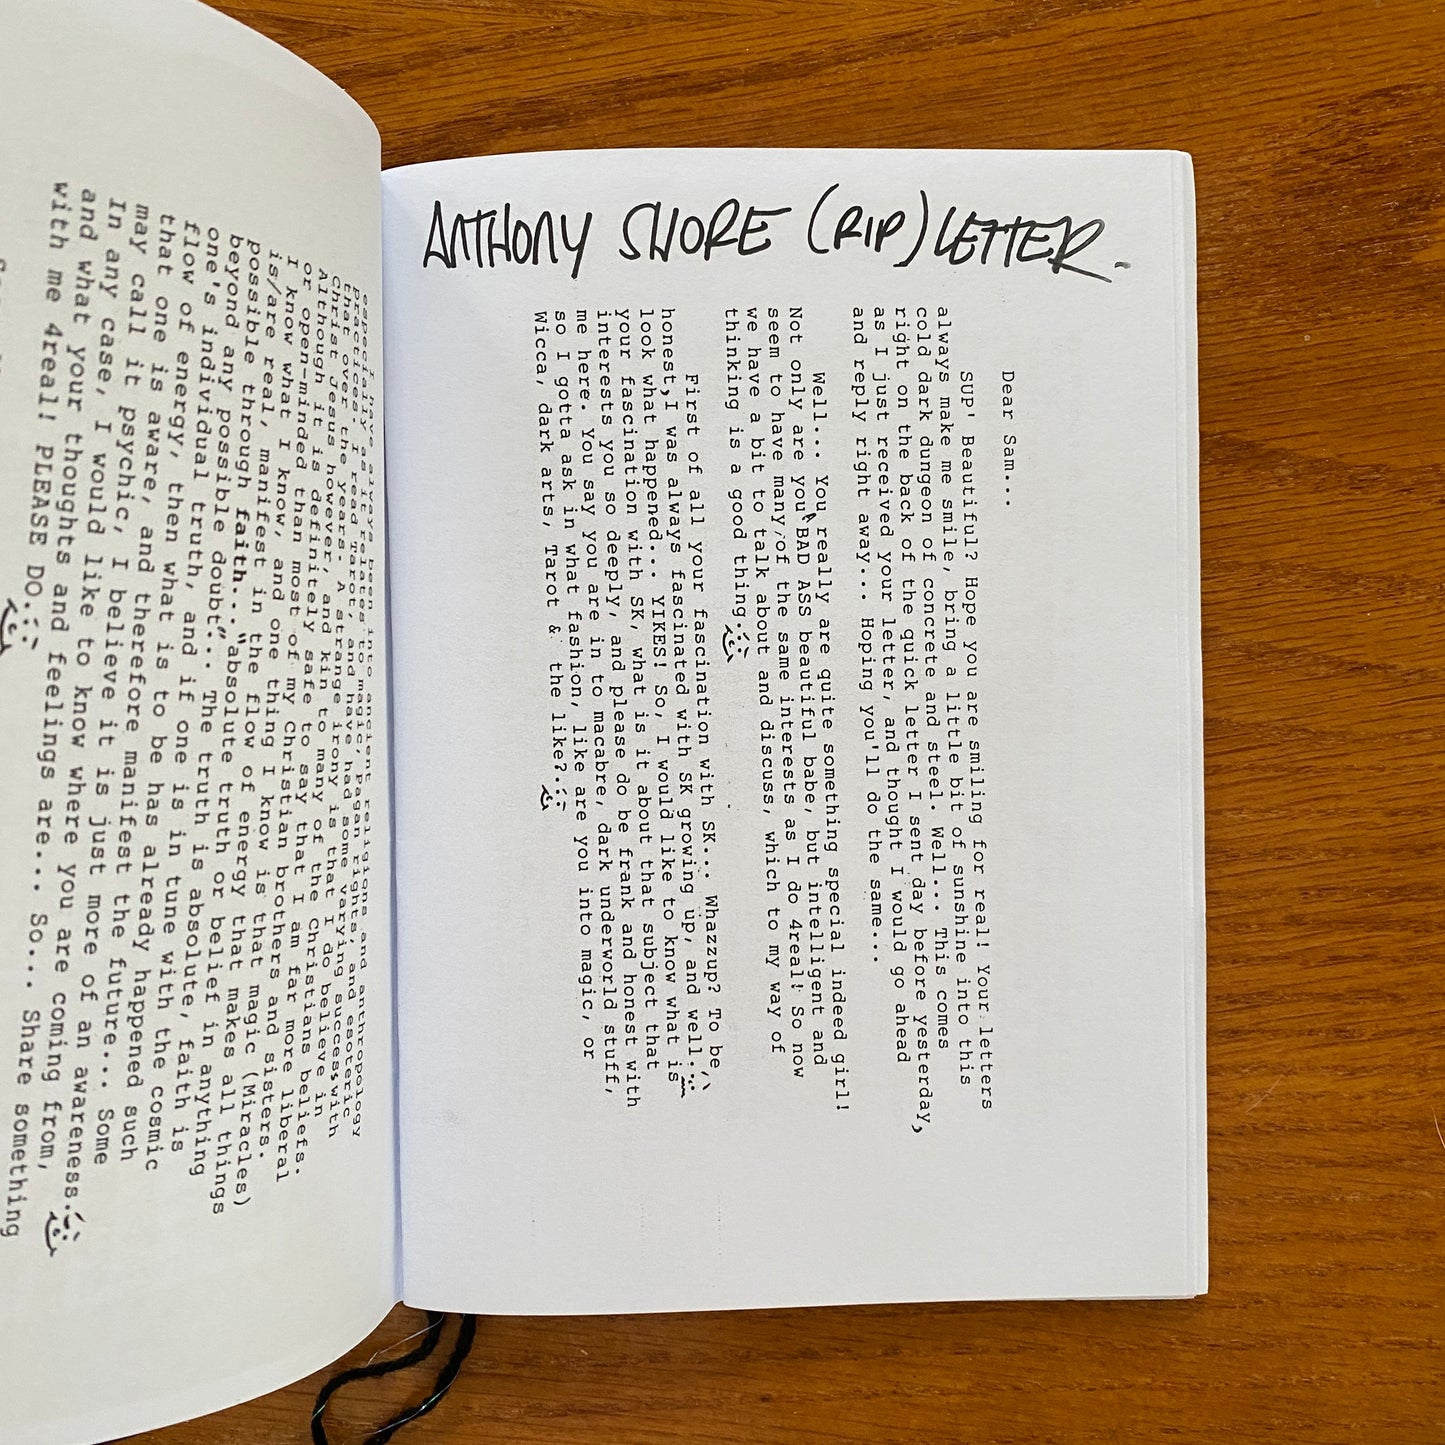 ANTHONY SHORE (RIP) LETTER.
Dear Sam...
SUP' Beautiful? Hope you are smiling for real! Your letters
always make me smile, bring a little bit of sunshine into this
cold dark dungeon of concrete and steel. Well... This comes
right on the back of the quick letter I sent day before yesterday,
as I just received your letter, and thought I would go ahead
and reply right away... Hoping you'll do the same...
Well... You really are quite something special indeed girl!
Not only are you BAD ASS beautiful babe, but intelligent and
seem to have many of the same interests as I do 4real! So now
we have a bit to talk about and discuss, which to my way of
thinking is a good thing.
First of all your fascination with SK... Whazzup? To be
honest, I was always fascinated with SK growing up, and well..
look what happened... YIKES! So, I would like to know what is
your fascination with SK, what is it about that subject that
interests you so deeply, and please do be frank and honest with
me here. You say you are in to macabre, dark underworld stuff,
so I gotta ask in what fashion, like are you into magic, or
Wicca, dark arts, Tarot & the like?.
I have always been into ancient religions and anthropology
especially as it relates to magic, pagan rights, and esoteric
practices. I read Tarot, and have had some varying success with
that over the years. A strange irony is that I do believe in
Christ Jesus however, and kin to many of the Christians beliefs.
Although it is definitely safe to say that I am far more liberal
or open-minded than most of my Christian brothers and sisters.
I know what I know, and one thing I know is that magic (Miracles)
is/are real, manifest in the flow of energy that makes all things
possible through faith... "absolute truth or belief in anything
beyond any possible doubt"... The truth is absolute, faith is
one's individual truth, and if one is in tune with the cosmic
flow of energy, then what is to be has already happened such
that one is aware, and therefore manifest the future... Some
may call it psychic, I believe it is just more of an awareness.
In any case, I would like to know where you are coming from,
and what your thoughts and feelings are... So... Share something
with me 4real! PLEASE DO.